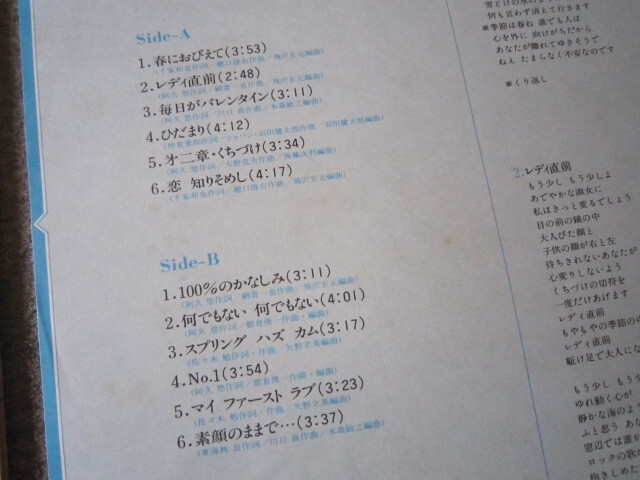 Side-A
1.春におびえて(3:53)
(千家和也作詞/樋口雄右作曲/飛沢宏元編曲)
2.レディ直前(2:48)
(阿久 悠作詞/網倉一也作曲/飛沢宏元編曲)
3.毎日がバレンタイン(3:11)
(阿久 悠作詞/川口 真作曲/木森敏之編曲)
4.ひだまり(4:12)
5.オ二章・くちづけ(3:34)
(阿久 悠作詞/大野克夫作曲/後藤次利編曲)
6.恋 知りそめし(4:17)
(千家和也作詞/樋口雄右作曲/飛沢宏元編曲)
Side-B
1.100%のかなしみ(3:11)
(阿久 悠作詞/網倉一也作曲/飛沢宏元編曲)
2.何でもない 何でもない(4:01)
(阿久 悠作詞/都倉俊一作曲・編曲)
3.スプリング ハズ カム(3:17)
(佐々木 勉作詞・作曲/矢野立美編曲)
4.No.1(3:54)
(阿久 悠作詞/都倉俊一作曲・編曲)
5.マイ ファースト ラブ(3:23)
(佐々木 勉作詞・作曲/矢野立美編曲)
6.素顔のままで…(3:37)
(東海林 良作詞/川口 真作曲/木森敏之編曲)
雪どけの水のよう
何も言わず消えて行きます
※季節は春ね 誰でも人は
心を外に 向けがちだから
あなたが離れてゆきそうで
ねえ たまらなく不安なのです
※くり返し
2.レディ直前
もう少し もう少しよ
あでやかな淑女に
私はきっと変るでしょう
目の前の鏡の中
大人びた顔と
子供の顔が右と左
待ちきれないあなたが
心変りしないよう
くちづけの切符を
一度だけあげます
レディ直前
もやもやの季節の
レディ直前
駈け足で大人にな
もう少し もう少し
ゆれ動く心が
静かな海の
ふと思う あな
窓辺では誰
ロックの歌が
抱きしめた